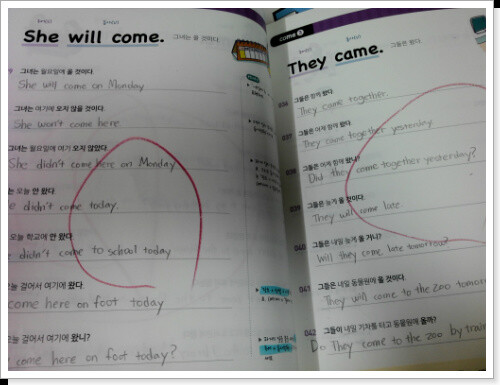 She will come.
그녀는 올 것이다.
그녀는 월요일에 올 것이다.
She will come on Monday
그녀는 여기에 오지 않을 것이다.
She won't come here
그녀는 월요일에 여기 오지 않았다.
She didn't come here on Monday.
는 오늘 안 왔다.
e didn't come today.
오늘 학교에 안 왔다.
e didn't come to school today
오늘 걸어서 여기에 왔다.
come here on foot today
오늘 걸어서 여기에 왔니?
come here on foot today?
come
They came.
그들은 왔다.
036
그들은 함께 왔다.
They came together.
037
그들은 어제 함께 왔다.
They came together yesterday.
038
그들은 어제 함께 왔니?
Did they come together yesterday?
039
그들은 늦게 올 것이다.
They will come late.
040
그들은 내일 늦게 올 거니?
Will they come late tomorrow?
041
그들은 내일 동물원에 올 것이다.
They will come to the zoo tomorr
042
그들이 내일 기차를 타고 동물원에 올까?
Do They come to the zoo by train